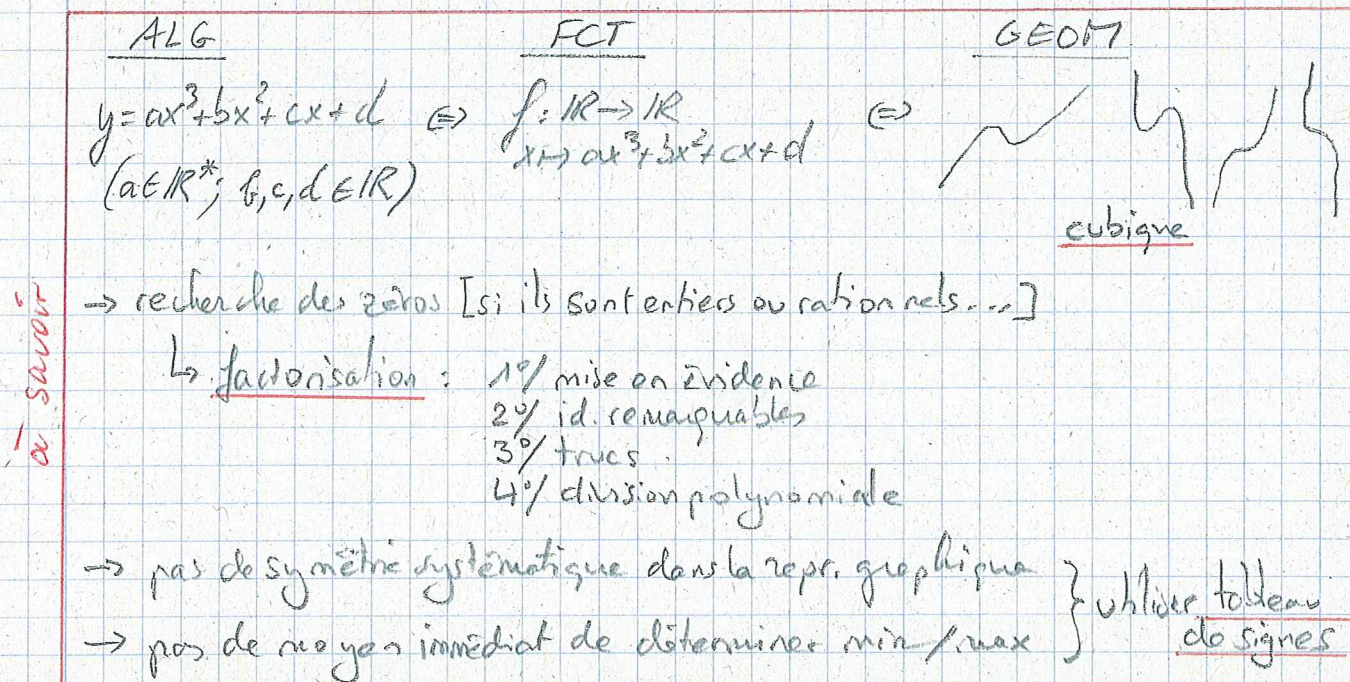 ALG FCT GEOM
y=ax³+bx²+cx+d ⇔ f: ℝ→ℝ ⇔
x↦ax³+bx²+cx+d
(a∈ℝ*; b,c,d∈ℝ)
cubique
à savoir
→ recherche des zéros [si ils sont entiers ou rationnels...]
↳ factorisation : 1°/ mise en évidence
2°/ id. remarquables
3°/ trucs
4°/ division polynomiale
→ pas de symétrie systématique dans la repr. graphique
→ pas de moyen immédiat de déterminer min/max
} utiliser tableau
de signes